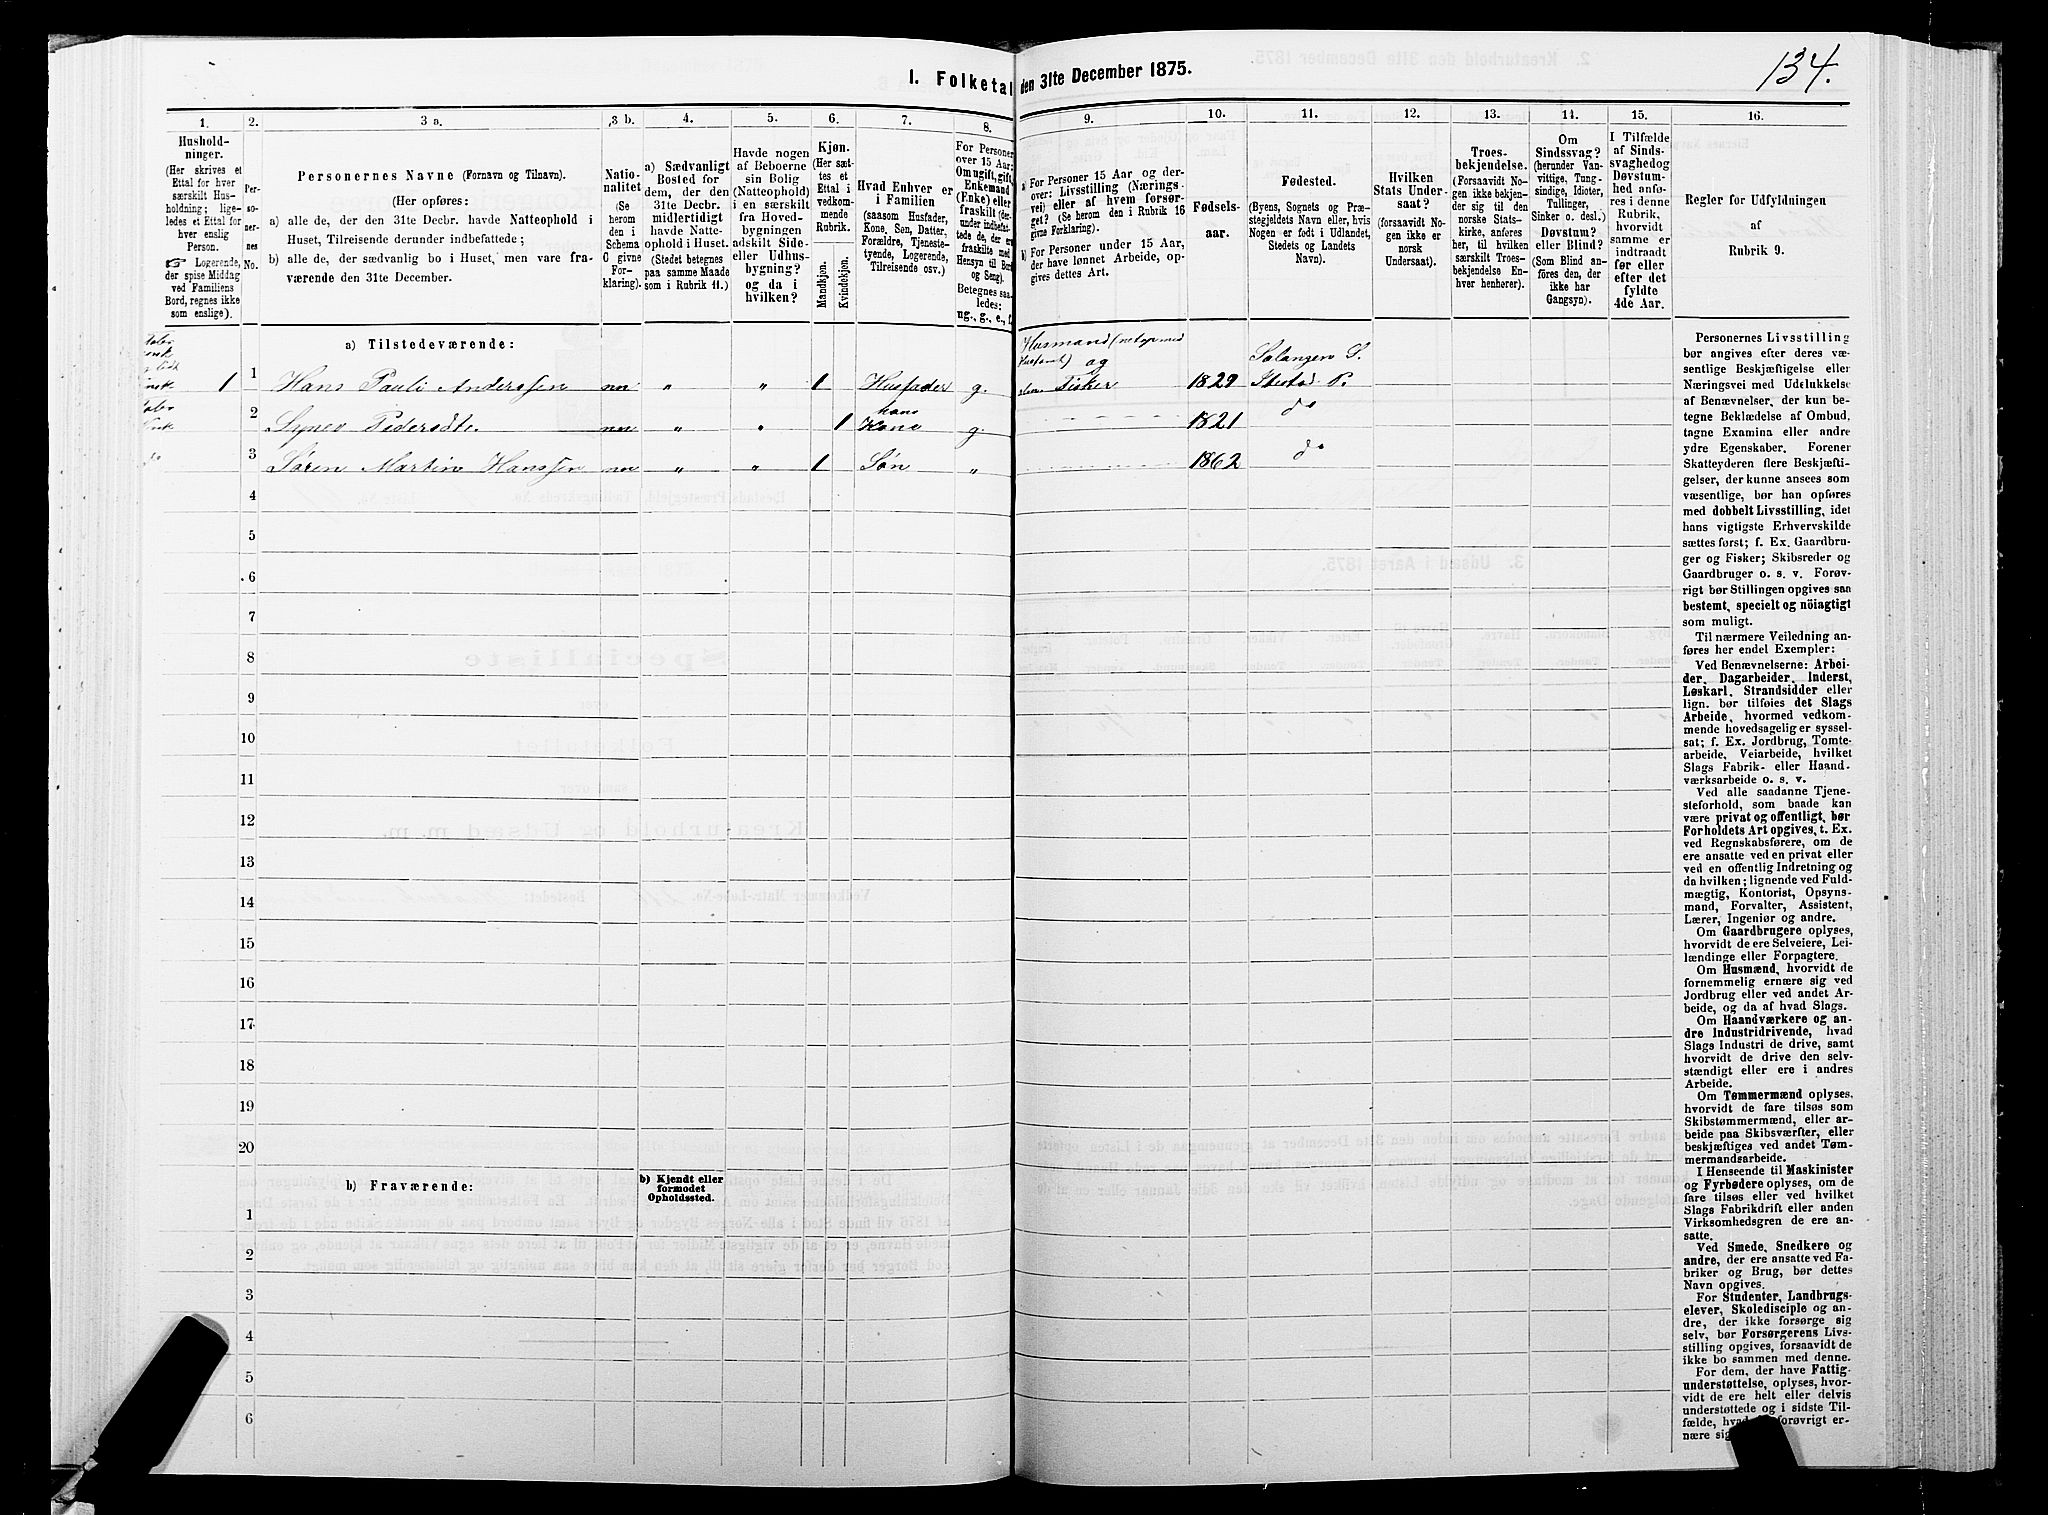 134.
I. Folketal den 31te December 1875.
1.
Hushold-
ninger.
(Her skrives et
Ettal for hver
særskilt Hus-
holdning; lige-
ledes et Ettal for
hver enslig
Person.
☞ Logerende,
der spise Middag
ved Familiens
Bord, regnes ikke
som enslige).
2.
Per-
so-
ner-
nes
No.
3 a.
Personernes Navne (Fornavn og Tilnavn).
(Her opføres:
a) alle de, der den 31te Decbr. havde Natteophold i
Huset, Tilreisende derunder indbefattede;
b) alle de, der sædvanlig bo i Huset, men vare fra-
værende den 31te December.
3 b.
Natio-
nalitet
(Se
herom
den i
Schema
C givne
For-
klaring).
4.
a) Sædvanligt
Bosted for
dem, der den
31te Decbr.
midlertidigt
havde Natte-
ophold i Huset.
(Stedet betegnes
paa samme Maade
som i Rubrik 11.)
5.
Havde nogen
af Beboerne
sin Bolig
(Natteophold)
i en særskilt
fra Hoved-
bygningen
adskilt Side-
eller Udhus-
bygning?
og da i
hvilken?
6.
Kjøn.
(Her sæt-
tes et
Ettal i
vedkom-
mende
Rubrik.
Mandkjøn.
Kvindekjøn.
7.
Hvad Enhver er
i Familien
(saasom Husfader,
Kone, Søn, Datter,
Forældre, Tjeneste-
tyende, Logerende,
Tilreisende osv.)
8.
For Personer
over 15 Aar:
Om ugift, gift,
Enkemand
(Enke) eller
fraskilt (der-
under indbefat-
tede de, der er
fraskilte med
Hensyn til Bord
og Seng).
Betegnes saa-
ledes:
ug., g., e., f.
9.
a) For Personer 15 Aar og der-
over: Livsstilling (Nærings-
vei) eller af hvem forsør-
get? (Se herom den i Rubrik 16
givne Forklaring).
b) For Personer under 15 Aar,
der have lønnet Arbeide, op-
gives dettes Art.
10.
Fødsels-
aar.
11.
Fødested.
(Byens, Sognets og Præ-
stegjeldets Navn eller, hvis
Nogen er født i Udlandet,
Stedets og Landets
Navn).
12.
Hvilken
Stats Under-
saat?
(forsaavidt No-
gen ikke er
norsk
Undersaat).
13.
Troes-
bekjendelse.
(Forsaavidt No-
gen ikke bekjen-
der sig til den
norske Stats-
kirke, anføres
her, til hvilken
særskilt Troes-
bekjendelse En-
hver henhører).
14.
Om
Sindssvag?
(herunder Van-
vittige, Tung-
sindige, Idioter,
Tullinger,
Sinker o. desl.)
Døvstum?
eller Blind?
(Som Blind an-
føres den, der
ikke har
Gangsyn).
15.
I Tilfælde
af Sinds-
svaghedog
Døvstum-
hed anfø-
res i denne
Rubrik,
hvorvidt
samme er
indtraadt
før eller
efter det
fyldte
4de Aar.
16.
Regler for Udfyldningen
af
Rubrik 9.
a) Tilstedeværende:
1 1 Hans Pauli Anderssen nn „ „ 1 Husfader g. Husmand og Fisker 1829 Salangen S. Ibestad P.
2 Pedersdtr. nn „ „ 1 hans Kone g. 1821 do
3 Søren Martin Hanssen nn „ „ 1 Søn „ 1862 do
4
5
6
7
8
9
10
11
12
13
14
15
16
17
18
19
20
b) Fraværende:
b) Kjendt eller
formodet
Opholdssted.
1
2
3
4
5
6
Personernes Livsstilling
bør angives efter deres væ-
sentlige Beskjæftigelse eller
Næringsvei med Udelukkelse
af Benævnelser, der kun be-
tegne Beklædelse af Ombud,
tagne Examina eller andre
ydre Egenskaber. Forener
Skatteyderen flere Beskjæfti-
gelser, der kunne ansees som
væsentlige, bør han opføres
med dobbelt Livsstilling, idet
hans vigtigste Erhvervskilde
sættes først; f. Ex. Gaardbru-
ger og Fisker; Skibsreder og
Gaardbruger o. s. v. Forøv-
rigt bør Stillingen opgives saa
bestemt, specielt og nöiagtigt
som muligt.
Til nærmere Veiledning an-
føres her endel Exempler:
Ved Benævnelserne: Arbei-
der, Dagarbeider, Inderst,
Løskarl, Strandsidder eller
lign. bør tilføies det Slags
Arbeide, hvormed vedkom-
mende hovedsagelig er syssel-
sat; f. Ex. Jordbrug, Tomte-
arbeide, Veiarbeide, hvilket
Slags Fabrik- eller Haand-
værksarbeide o. s. v.
Ved alle saadanne Tjene-
steforhold, som baade kan
være privat og offentligt, bør
Forholdets Art opgives, t. Ex.
ved Regnskabsførere, om de
ere ansatte ved en privat eller
ved en offentlig Indretning og
da hvilken; lignende ved Fuld-
mægtig, Kontorist, Opsyns-
mand, Forvalter, Assistent,
Lærer, Ingeniør og andre.
Om Gaardbrugere oplyses,
hvorvidt de ere Selveiere, Lei-
lændinge eller Forpagtere.
Om Husmænd, hvorvidt de
fornemmelig ernære sig ved
Jordbrug eller ved andet Ar-
beide, og da af hvad Slags.
Om Haandværkere og an-
dre Industridrivende, hvad
Slags Industri de drive, samt
hvorvidt de drive den selv-
stændigt eller ere i andres
Arbeide.
Om Tømmermænd oplyses,
hvorvidt de fare tilsøs som
Skibstømmermænd, eller ar-
beide paa Skibsværfter, eller
beskjæftiges ved andet Tøm-
mermandsarbeide.
I Henseende til Maskinister
og Fyrbødere oplyses, om de
fare tilsøs eller ved hvilket
Slags Fabrikdrift eller anden
Virksomhedsgren de ere an-
satte.
Ved Smede, Snedkere og
andre, der ere ansatte ved Fa-
briker og Brug, bør dettes
Navn opgives.
For Studenter, Landbrugs-
elever, Skoledisciple og an-
dre, der ikke forsørge sig
selv, bør Forsørgerens Livs-
stilling opgives, forsaavidt de
ikke bo sammen med denne.
For dem, der have Fattig-
understøttelse, oplyses, hvor-
vidt de ere helt eller delvis
understøttede og i sidste Til-
fælde, forøvrigt er-
nære